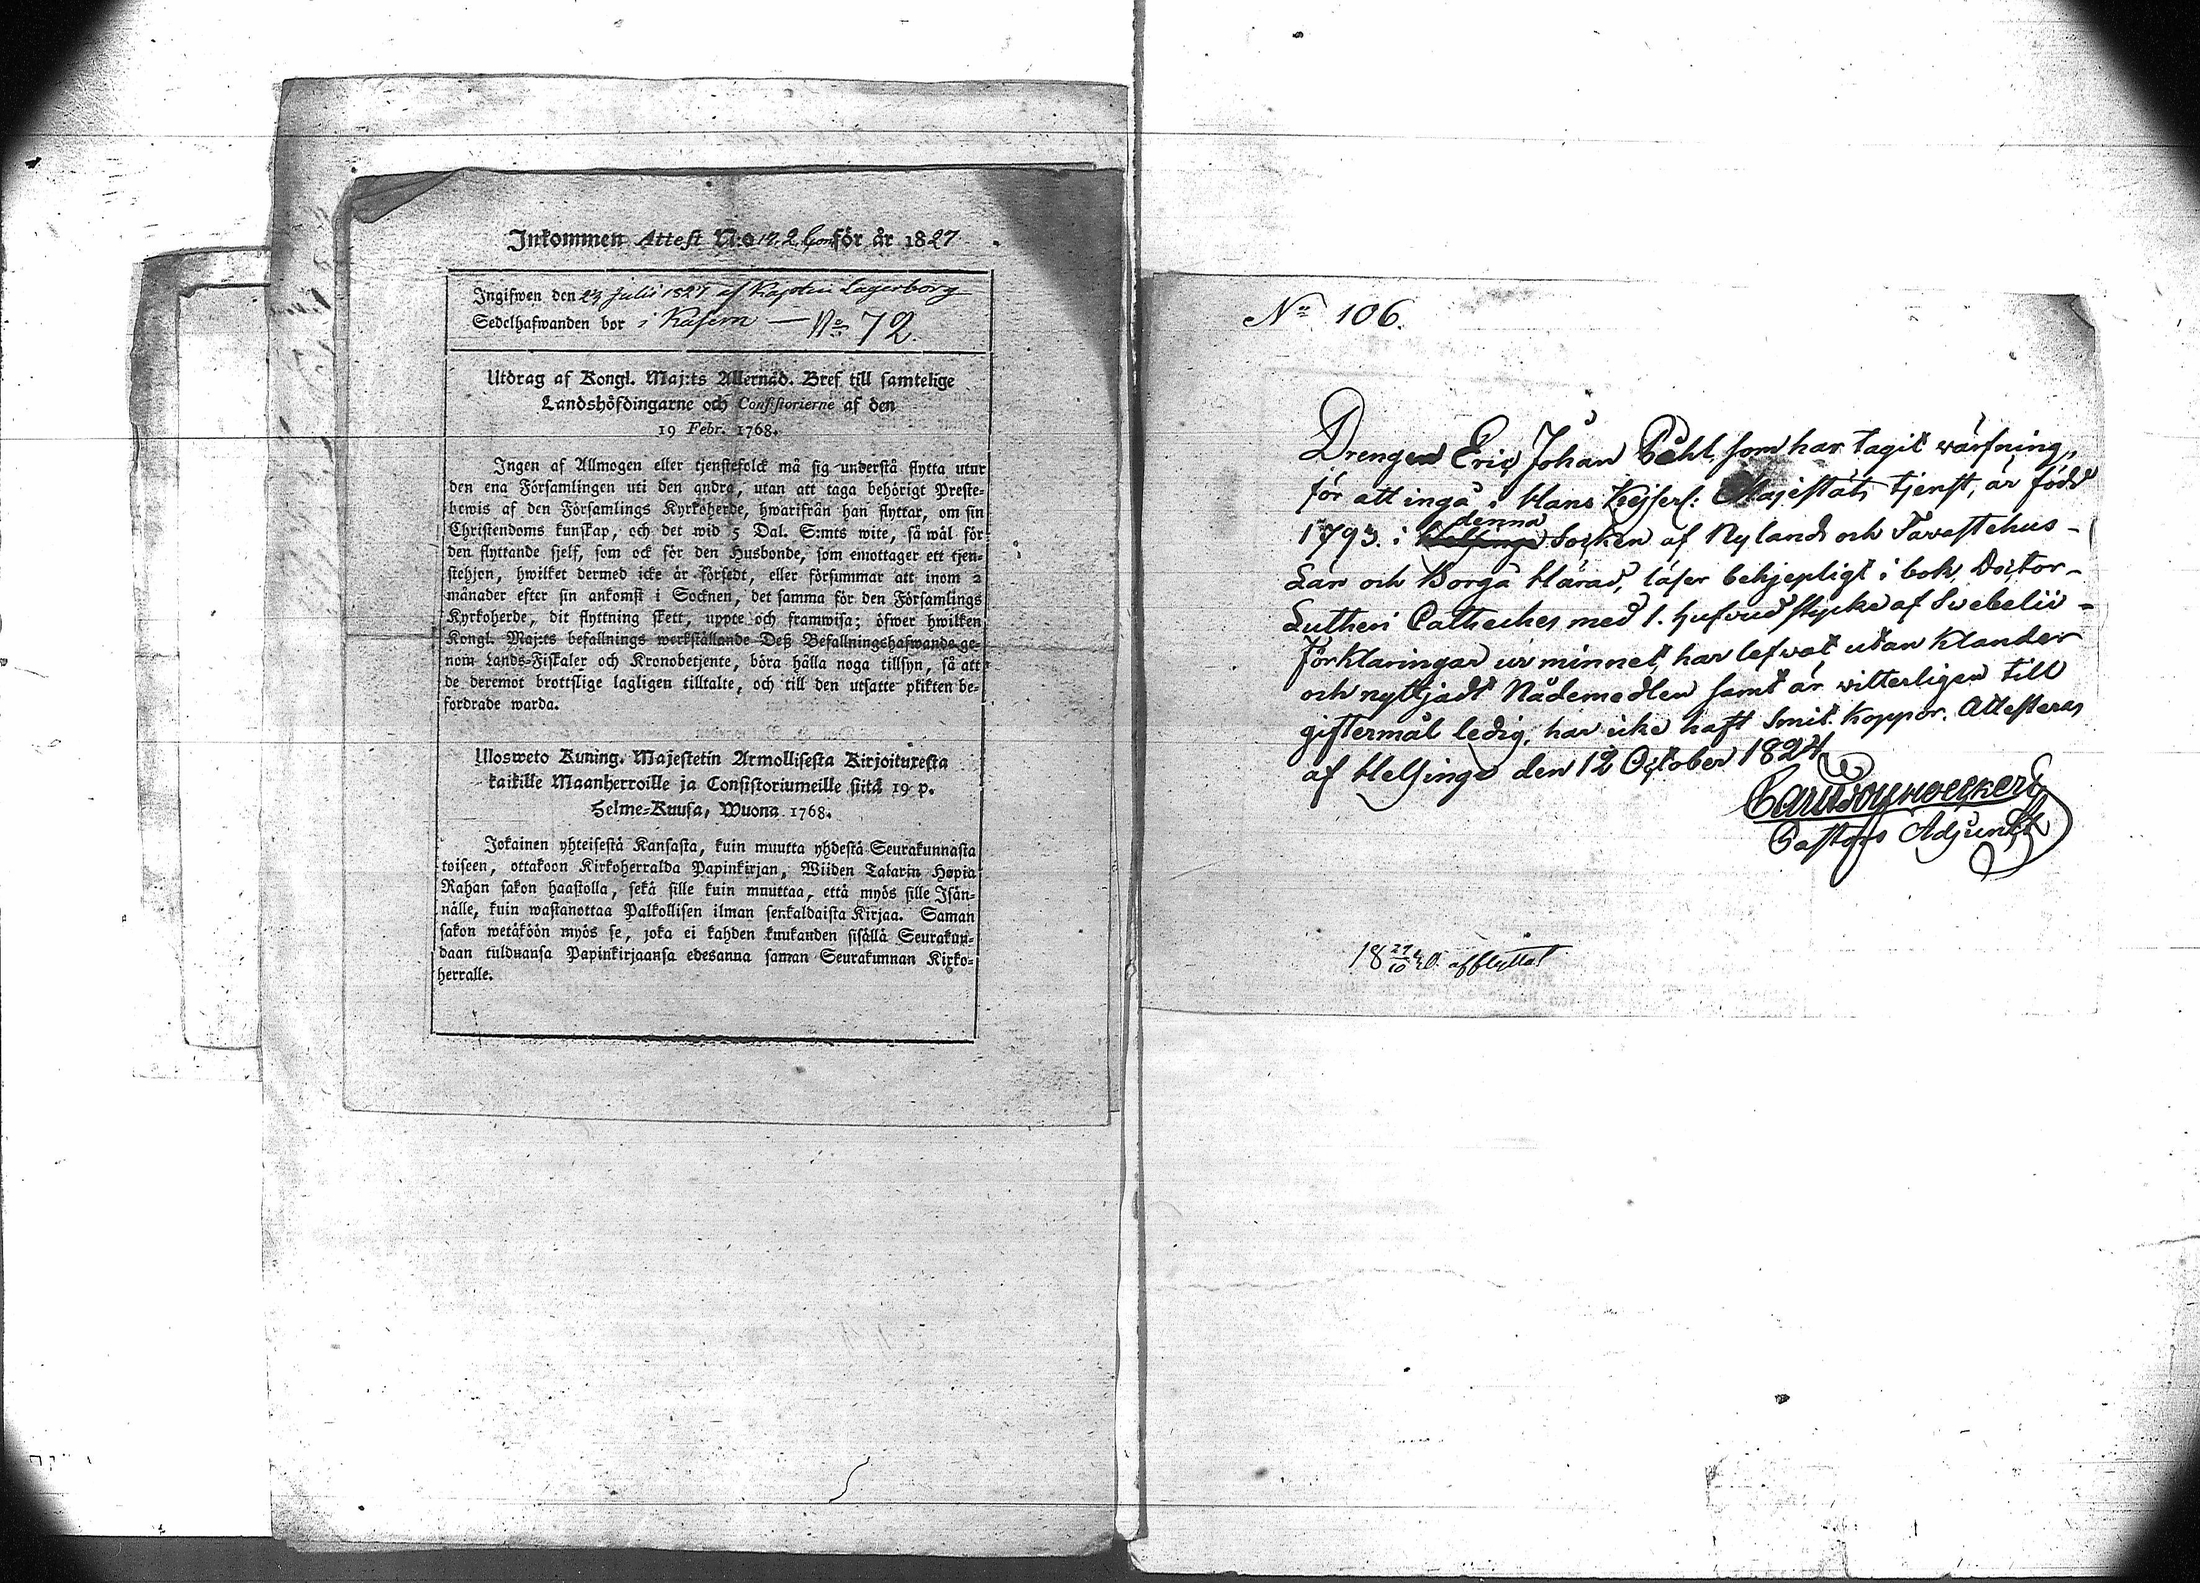 Inkommen Attest N:o för år 1827
Ingifwen den 23 Julii 1827 af Kapten Lagerborg
Sedelhafwanden bor i Kasern — No 72.
Utdrag af Kongl. Maj:ts Allernåd. Bref till samtelige
Landshöfdingarne och Consistorierne af den
19 Febr. 1768.
Ingen af Allmogen eller tjenstefolck må sig understå flytta utur
den ena Församlingen uti den andra, utan att taga behörigt Preste-
bewis af den Församlings Kyrkoherde, hwarifrån han flyttar, om sin
Christendoms kunskap, och det wid 5 Dal. S:mts wite, så wäl för
den flyttande sjelf, som ock för den Husbonde, som emottager ett tjen-
stehjon, hwilket dermed icke är försedt, eller försummar att inom 2
månader efter sin ankomst i Socknen, det samma för den Församlings
Kyrkoherde, dit flyttning skett, uppte och framwisa; öfwer hwilken
Kongl. Maj:ts befallnings werkställande Deß Befallningshafwande ge-
nom Lands-Fiskaler och Kronobetjente, böra hålla noga tillsyn, så att
de deremot brottslige lagligen tilltalte, och till den utsatte plikten be-
fordrade warda.
Ulosweto Kuning. Majestetin Armollisesta Kirjoituxesta
kaikille Maanherroille ja Consistoriumeille siitä 19 p.
Helme-Kuusa, Wuona 1768.
Jokainen yhteisestä Kansasta, kuin muutta yhdestä Seurakunnasta
toiseen, ottakoon Kirkoherralda Papinkirjan, Wiiden Talarin Hopia
Rahan sakon haastolla, sekä sille kuin muuttaa, että myös sille Isän-
nälle, kuin wastanottaa Palkollisen ilman senkaldaista Kirjaa. Saman
sakon wetäköön myös se, joka ei kahden kuukauden sisällä Seurakun-
daan tulduansa Papinkirjaansa edesanna saman Seurakunnan Kirko-
herralle.
No 106.
Drengen Eric Johan Påhl, som har tagit wärfning,
för att ingå i Hans Kejserl: Majestäts tjenst, är född
denna
1793. i Socken af Nyland och Tavastehus-
Län och Borgå Härad, läser behjepligt i bok, Doctor-
Lutheri Catheches med 1. hufvud stycke af Svebelii-
förklaringar ur minnet, har lefvat utan klander
och nyttjadt Nådemedlen samt är witterligen till
giftermål ledig, har icke haft Smit. koppor. Attesteras
af Helsinge den 12 October 1824
Pastors Adjunct
18 27/10 afflyttat